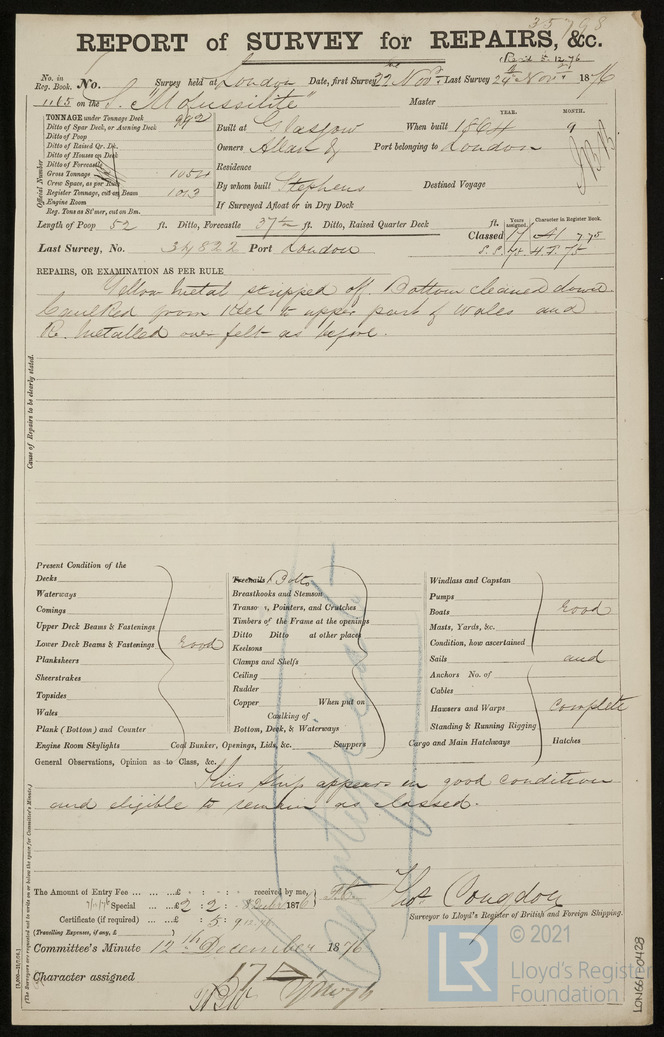 35798
REPORT of SURVEY for REPAIRS, &c.
No. in Reg. Book. No. Survey held at London Date, first Survey 22nd Novr. Last Survey 29th Novr. 1876
1165 on the S. "Mofussilite" Master
TONNAGE under Tonnage Deck 992
Ditto of Spar Deck, or Awning Deck
Ditto of Poop
Ditto of Raised Qr. Dk.
Ditto of Houses on Deck
Ditto of Forecastle
Gross Tonnage 1054
Crew Space, as per Rule
Register Tonnage, cut on Beam 1013
Engine Room
Reg. Tons as St'mer, cut on Bm.
Official Number
YEAR. MONTH.
Built at Glasgow When built 1864 9
Owners Allan Port belonging to London
Residence
By whom built Stephens Destined Voyage
If Surveyed Afloat or in Dry Dock
Length of Poop 52 ft. Ditto, Forecastle 37 ft. Ditto, Raised Quarter Deck ft.
Years assigned. Character in Register Book.
Classed 17 A1 7.75
Last Survey, No. 34822 Port London
REPAIRS, OR EXAMINATION AS PER RULE
Yellow Metal stripped off. Bottom cleaned down
Caulked from Keel to upper part of Wales and
Re. Metalled over felt as before.
Cause of Repairs to be clearly stated.
Present Condition of the
Decks
Waterways
Comings
Upper Deck Beams & Fastenings
Lower Deck Beams & Fastenings
Planksheers
Sheerstrakes
Topsides
Wales
Plank (Bottom) and Counter
Engine Room Skylights
Good
Treenails Bolts
Breasthooks and Stemson
Transoms, Pointers, and Crutches
Timbers of the Frame at the openings
Ditto Ditto at other places
Keelsons
Clamps and Shelfs
Ceiling
Rudder
Copper When put on
Caulking of
Bottom, Deck, & Waterways
Coal Bunker, Openings, Lids, &c. Scuppers
Windlass and Capstan
Pumps
Boats
Masts, Yards, &c.
Condition, how ascertained
Sails
Anchors No. of
Cables
Hawsers and Warps
Standing & Running Rigging
Cargo and Main Hatchways Hatches
Good
and
Complete
General Observations, Opinion as to Class, &c.
This Ship appears in good condition
and eligible to remain as classed.
The Amount of Entry Fee £ : : received by me,
Special £2 : 2 : 187
Certificate (if required) : 5 :
(Travelling Expenses, if any, £ )
Thos Congdon
Surveyor to Lloyd's Register of British and Foreign Shipping.
Committee's Minute 12th December 1876
Character assigned 17 A
© 2021
LR
Lloyd's Register
Foundation
LON661-0428